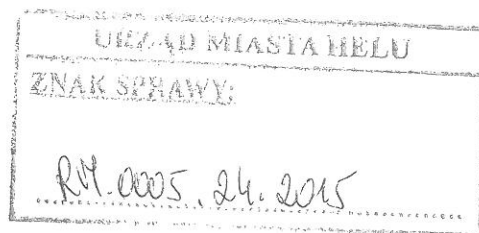 URZĄD MIASTA HELU
ZNAK SPRAWY:
RM.0005.24.2015